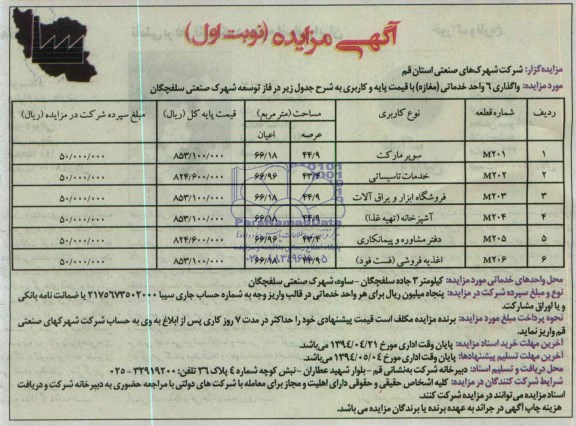 آگهی مزایده (نوبت اول)
مزایده‌گزار: شرکت شهرک‌های صنعتی استان قم
مورد مزایده: واگذاری ۶ واحد خدماتی (مغازه) با قیمت پایه و کاربری به شرح جدول زیر در فاز توسعه شهرک صنعتی سلفچگان
ردیف شماره قطعه نوع کاربری مساحت (متر مربع) قیمت پایه کل (ریال) مبلغ سپرده شرکت در مزایده (ریال)
عرصه اعیان
۱ M۲۰۱ سوپر مارکت ۴۴/۹ ۶۶/۱۸ ۸۵۳/۱۰۰/۰۰۰ ۵۰/۰۰۰/۰۰۰
۲ M۲۰۲ خدمات تاسیساتی ۴۳/۴ ۶۶/۹۶ ۸۲۴/۶۰۰/۰۰۰ ۵۰/۰۰۰/۰۰۰
۳ M۲۰۳ فروشگاه ابزار و یراق آلات ۴۴/۹ ۶۶/۱۸ ۸۵۳/۱۰۰/۰۰۰ ۵۰/۰۰۰/۰۰۰
۴ M۲۰۴ آشپزخانه (تهیه غذا) ۴۴/۹ ۶۶/۱۸ ۸۵۳/۱۰۰/۰۰۰ ۵۰/۰۰۰/۰۰۰
۵ M۲۰۵ دفتر مشاوره و پیمانکاری ۴۳/۴ ۶۶/۹۶ ۸۲۴/۶۰۰/۰۰۰ ۵۰/۰۰۰/۰۰۰
۶ M۲۰۶ اغذیه فروشی (فست فود) ۴۴/۹ ۶۶/۱۸ ۸۵۳/۱۰۰/۰۰۰ ۵۰/۰۰۰/۰۰۰
محل واحدهای خدماتی مورد مزایده: کیلومتر ۳ جاده سلفچگان - ساوه، شهرک صنعتی سلفچگان
نوع و مبلغ سپرده شرکت در مزایده: پنجاه میلیون ریال برای هر واحد خدماتی در قالب واریز وجه به شماره حساب جاری سیبا ۲۱۷۵۶۷۳۵۰۲۰۰۰ یا ضمانت نامه بانکی
و یا اوراق مشارکت
نحوه پرداخت مبلغ مورد مزایده: برنده مزایده مکلف است قیمت پیشنهادی خود را حداکثر در مدت ۷ روز کاری پس از ابلاغ به وی به حساب شرکت شهرکهای صنعتی
قم واریز نماید.
آخرین مهلت خرید اسناد مزایده: پایان وقت اداری مورخ ۱۳۹۴/۰۴/۲۱ می‌باشد.
آخرین مهلت تسلیم پیشنهادها: پایان وقت اداری مورخ ۱۳۹۴/۰۵/۰۴ می‌باشد.
محل دریافت و تسلیم اسناد: دبیرخانه شرکت به‌نشانی قم - بلوار شهید عطاران - نبش کوچه شماره ۴ پلاک ۳۶ تلفن: ۳۲۹۱۹۲۰۰ - ۰۲۵
شرایط شرکت کنندگان در مزایده: کلیه اشخاص حقیقی و حقوقی دارای اهلیت و مجاز برای معامله با شرکت های دولتی با مراجعه حضوری به دبیرخانه شرکت و دریافت
اسناد مزایده می‌توانند در مزایده شرکت کنند.
هزینه چاپ آگهی در جراید به عهده برنده یا برندگان مزایده می باشد.